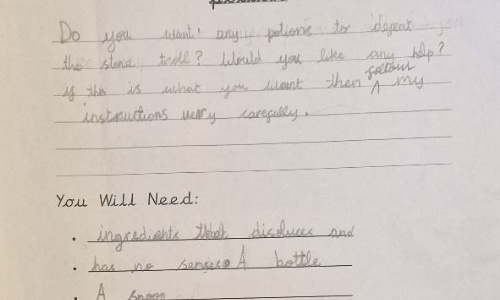 Do you want any potions to defeat
the stone troll? Would you like any help?
if this is what you want then follow my
instructions very carefully.
You Will Need:
• ingredients that disoluces and
• has no senses A bottle
• A spoon